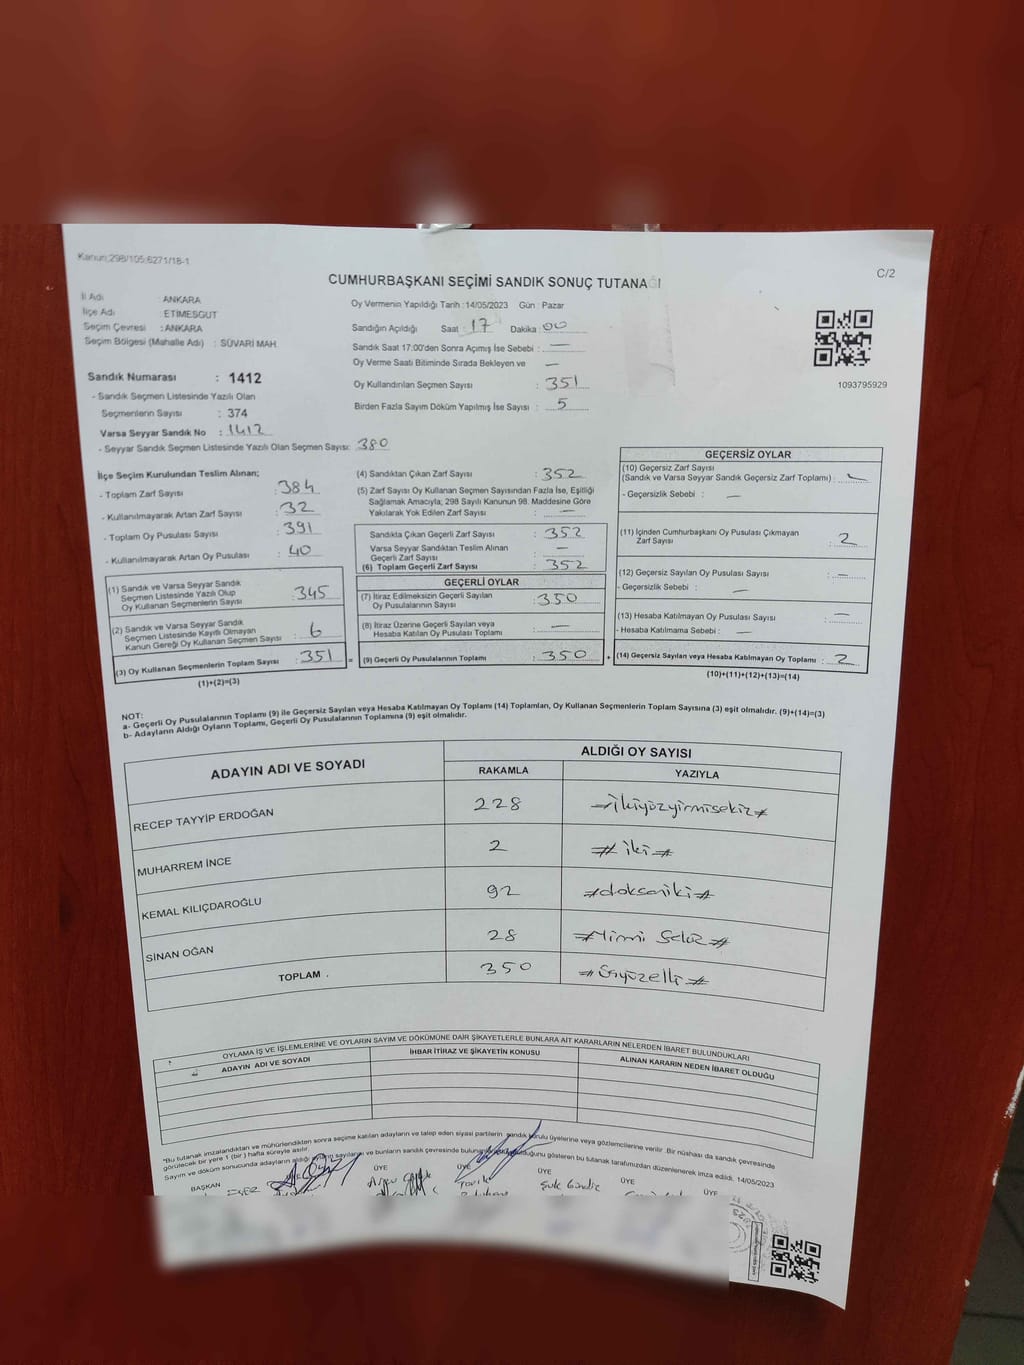 Kanun:298/105:6271/18-1
C/2
CUMHURBAŞKANI SEÇİMİ SANDIK SONUÇ TUTANAĞI
İl Adı : ANKARA
İlçe Adı : ETİMESGUT
Seçim Çevresi : ANKARA
Seçim Bölgesi (Mahalle Adı) : SÜVARİ MAH.
Sandık Numarası : 1412
- Sandık Seçmen Listesinde Yazılı Olan
Seçmenlerin Sayısı : 374
Varsa Seyyar Sandık No : 1412
- Seyyar Sandık Seçmen Listesinde Yazılı Olan Seçmen Sayısı: 380
Oy Vermenin Yapıldığı Tarih : 14/05/2023 Gün : Pazar
Sandığın Açıldığı Saat : 17 Dakika : 00
Sandık Saat 17:00'den Sonra Açımış İse Sebebi : —
Oy Verme Saati Bitiminde Sırada Bekleyen ve —
Oy Kullandırılan Seçmen Sayısı : 351
Birden Fazla Sayım Döküm Yapılmış İse Sayısı : 5
1093795929
İlçe Seçim Kurulundan Teslim Alınan;
- Toplam Zarf Sayısı : 384
- Kullanılmayarak Artan Zarf Sayısı : 32
- Toplam Oy Pusulası Sayısı : 391
- Kullanılmayarak Artan Oy Pusulası : 40
(1) Sandık ve Varsa Seyyar Sandık
Seçmen Listesinde Yazılı Olup
Oy Kullanan Seçmenlerin Sayısı : 345
(2) Sandık ve Varsa Seyyar Sandık
Seçmen Listesinde Kayıtlı Olmayan
Kanun Gereği Oy Kullanan Seçmen Sayısı : 6
(3) Oy Kullanan Seçmenlerin Toplam Sayısı : 351 =
(1)+(2)=(3)
(4) Sandıktan Çıkan Zarf Sayısı : 352
(5) Zarf Sayısı Oy Kullanan Seçmen Sayısından Fazla İse, Eşitliği
Sağlamak Amacıyla, 298 Sayılı Kanunun 98. Maddesine Göre
Yakılarak Yok Edilen Zarf Sayısı : —
Sandıkta Çıkan Geçerli Zarf Sayısı : 352
Varsa Seyyar Sandıktan Teslim Alınan
Geçerli Zarf Sayısı : —
(6) Toplam Geçerli Zarf Sayısı : 352
GEÇERLİ OYLAR
(7) İtiraz Edilmeksizin Geçerli Sayılan
Oy Pusulalarının Sayısı : 350
(8) İtiraz Üzerine Geçerli Sayılan veya
Hesaba Katılan Oy Pusulası Toplamı : —
(9) Geçerli Oy Pusulalarının Toplamı : 350 +
GEÇERSİZ OYLAR
(10) Geçersiz Zarf Sayısı
(Sandık ve Varsa Seyyar Sandık Geçersiz Zarf Toplamı) :
- Geçersizlik Sebebi : —
(11) İçinden Cumhurbaşkanı Oy Pusulası Çıkmayan
Zarf Sayısı : 2
(12) Geçersiz Sayılan Oy Pusulası Sayısı : —
- Geçersizlik Sebebi : —
(13) Hesaba Katılmayan Oy Pusulası Sayısı : —
- Hesaba Katılmama Sebebi : —
(14) Geçersiz Sayılan veya Hesaba Katılmayan Oy Toplamı : 2
(10)+(11)+(12)+(13)=(14)
NOT:
a- Geçerli Oy Pusulalarının Toplamı (9) ile Geçersiz Sayılan veya Hesaba Katılmayan Oy Toplamı (14) Toplamları, Oy Kullanan Seçmenlerin Toplam Sayısına (3) eşit olmalıdır. (9)+(14)=(3)
b- Adayların Aldığı Oyların Toplamı, Geçerli Oy Pusulalarının Toplamına (9) eşit olmalıdır.
ADAYIN ADI VE SOYADI
ALDIĞI OY SAYISI
RAKAMLA YAZIYLA
RECEP TAYYİP ERDOĞAN 228 #ikiyüzyirmisekiz#
MUHARREM İNCE 2 #iki#
KEMAL KILIÇDAROĞLU 92 #doksaniki#
SİNAN OĞAN 28 #Yirmi Sekiz#
TOPLAM 350 #üçyüzelli#
OYLAMA İŞ VE İŞLEMLERİNE VE OYLARIN SAYIM VE DÖKÜMÜNE DAİR ŞİKAYETLERLE BUNLARA AİT KARARLARIN NELERDEN İBARET BULUNDUKLARI
ADAYIN ADI VE SOYADI İHBAR İTİRAZ VE ŞİKAYETİN KONUSU ALINAN KARARIN NEDEN İBARET OLDUĞU
"Bu tutanak imzalandıktan ve mühürlendikten sonra seçime katılan adayların ve talep eden siyasi partilerin sandık kurulu üyelerine veya gözlemcilerine verilir. Bir nüshası da sandık çevresinde
görülecek bir yere 1 (bir) hafta süreyle asılır.
Sayım ve döküm sonucunda adayların aldığı oyların sayılarını ve bunların sandık çevresinde gösteren bu tutanak tarafımızdan düzenlenerek imza edildi. 14/05/2023
BAŞKAN ÜYE ÜYE ÜYE ÜYE ÜYE